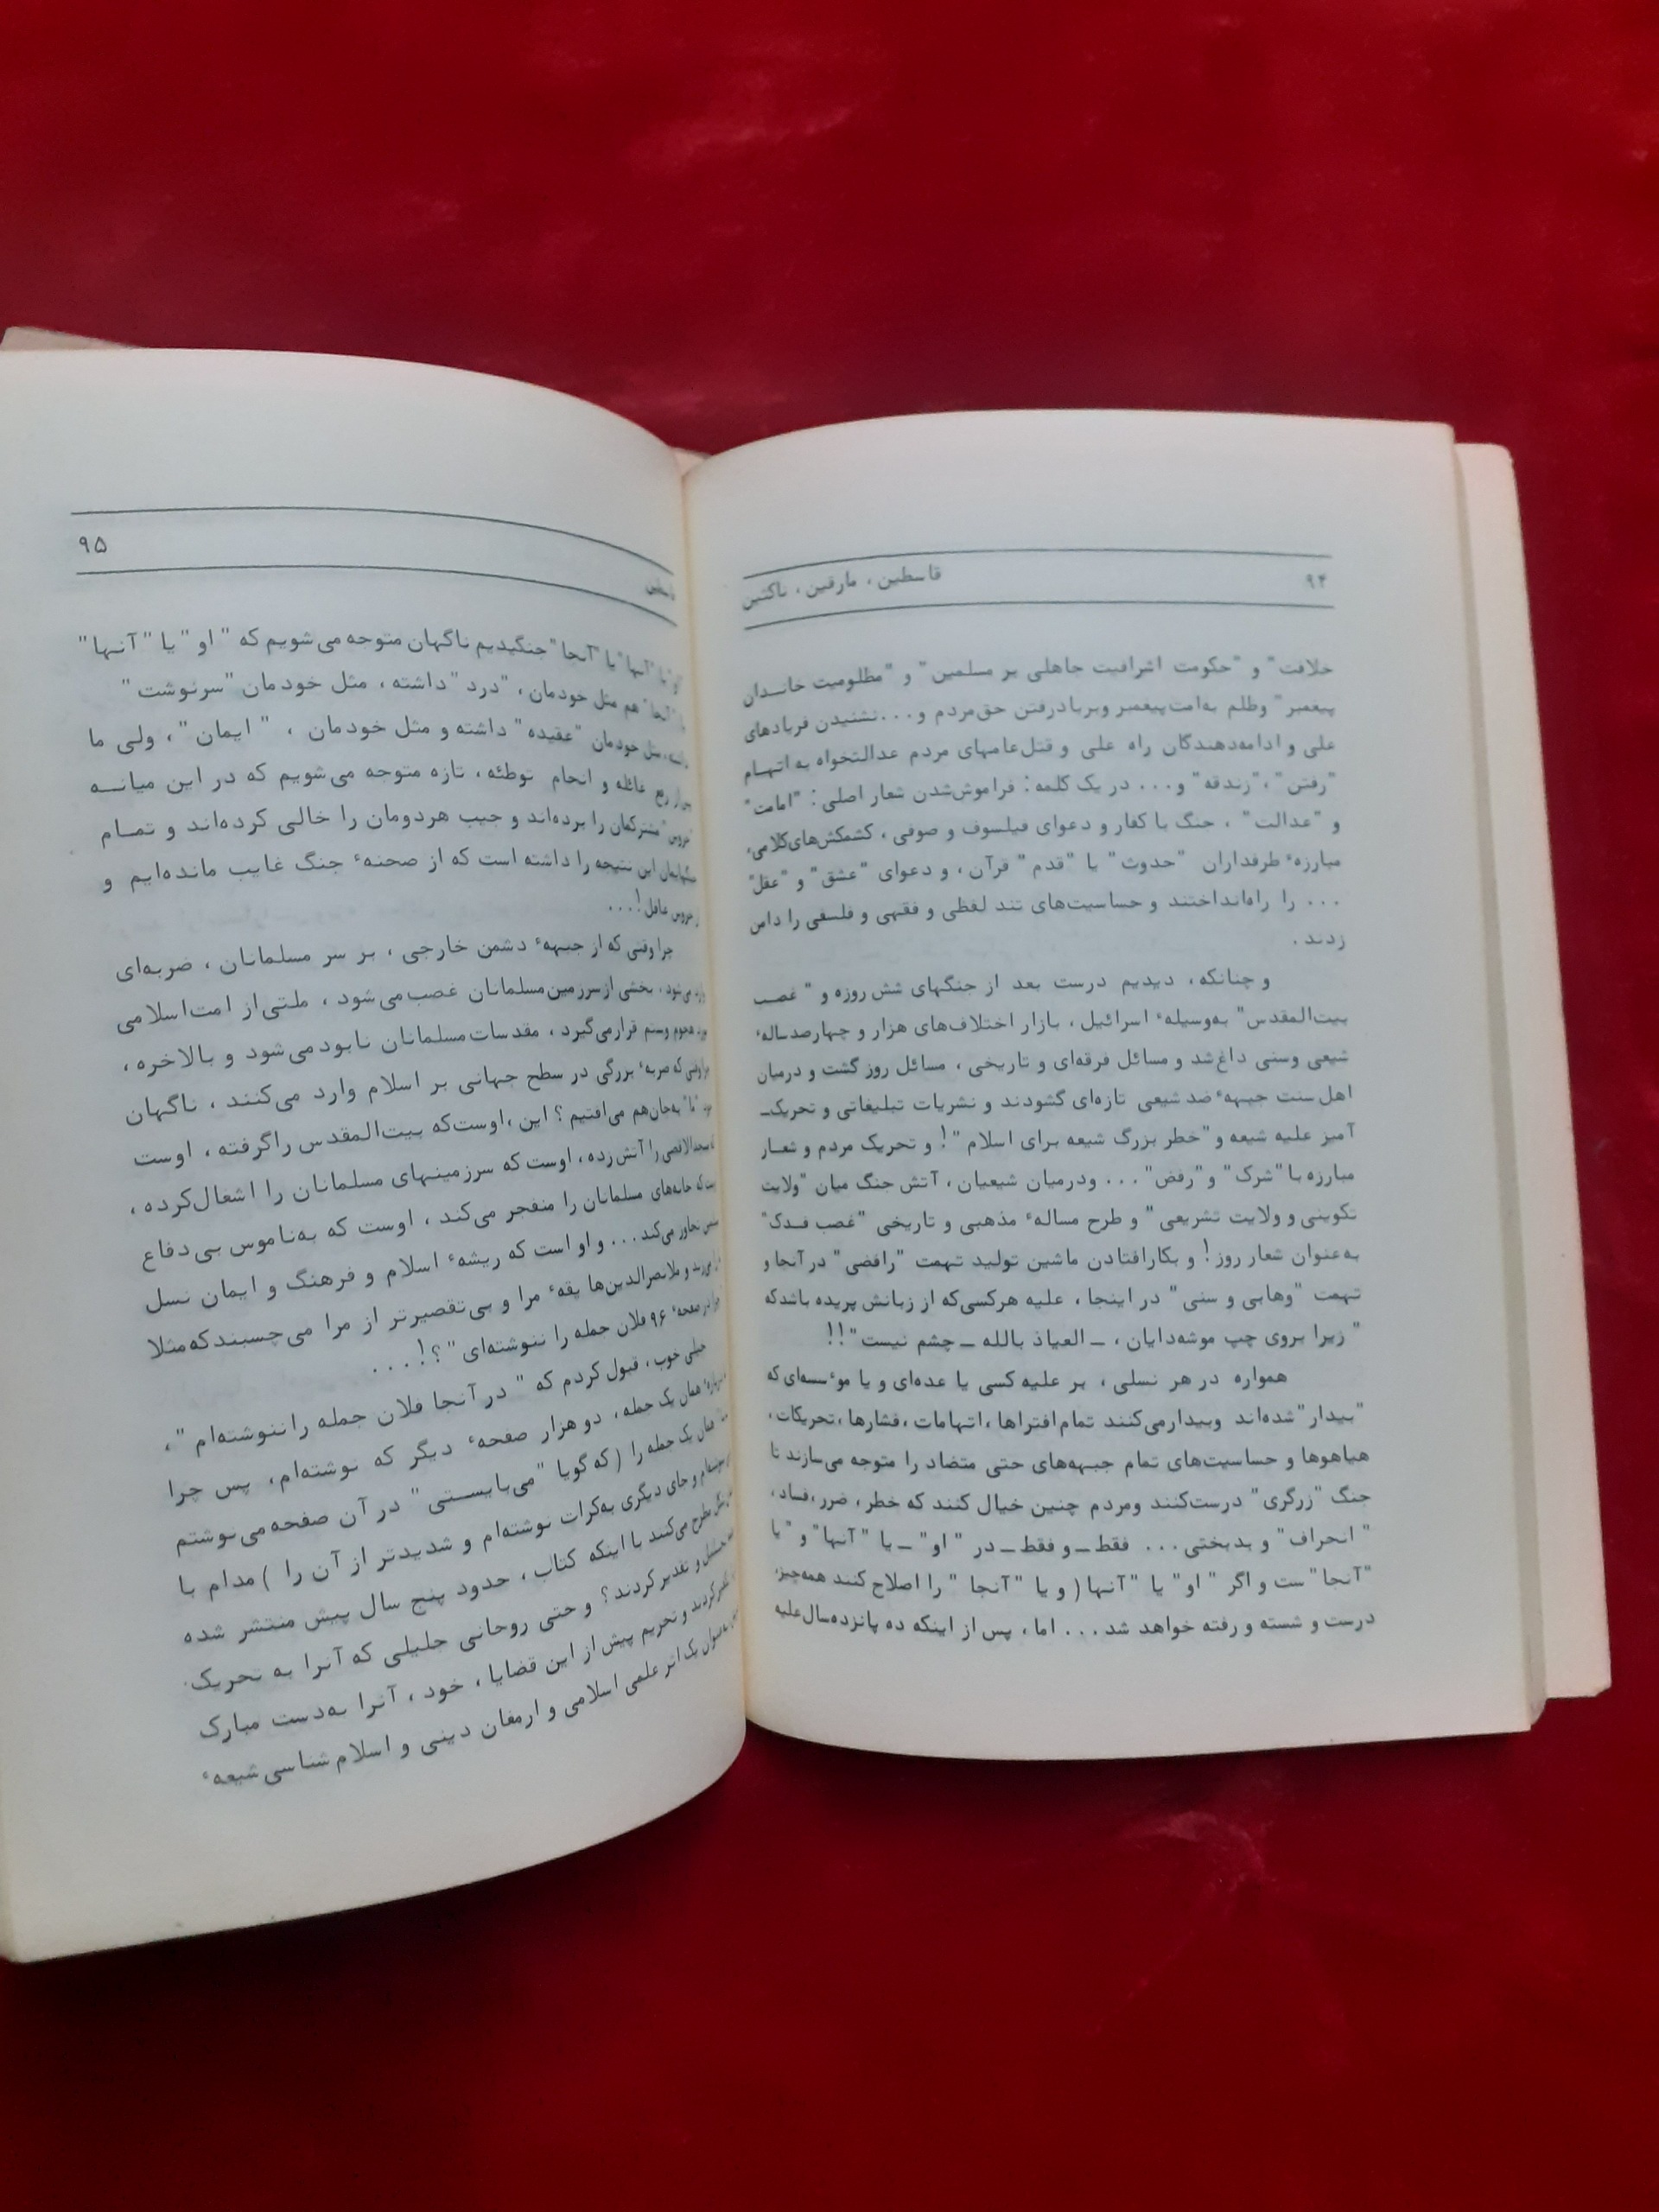 ۹۴
قاسطین، مارقین، ناکثین
خلافت" و "حکومت اشرافیت جاهلی بر مسلمین" و "مظلومیت خاندان
پیغمبر" وظلم به‌امت‌پیغمبر وبربادرفتن حق‌مردم و...نشنیدن فریادهای
علی و ادامه‌دهندگان راه علی و قتل‌عامهای مردم عدالتخواه به اتهام
"رفتن"،"زندقه" و... در یک کلمه: فراموش‌شدن شعار اصلی: "امامت"
و "عدالت" ، جنگ با کفار و دعوای فیلسوف و صوفی ، کشمکش‌های‌کلامی،
مبارزهٔ طرفداران "حدوث" یا "قدم" قرآن ، و دعوای "عشق" و "عقل"
... را راه‌انداختند و حساسیت‌های تند لفظی و فقهی و فلسفی را دامن
زدند .
و چنانکه، دیدیم درست بعد از جنگهای شش روزه و " غصب
بیت‌المقدس" به‌وسیلهٔ اسرائیل، بازار اختلاف‌های هزار و چهارصدسالهٔ
شیعی وسنی داغ‌شد و مسائل فرقه‌ای و تاریخی ، مسائل روز گشت و درمیان
اهل سنت جبههٔ ضد شیعی تازه‌ای گشودند و نشریات تبلیغاتی و تحریک‌ـ
آمیز علیه شیعه و "خطر بزرگ شیعه برای اسلام "! و تحریک مردم و شعار
مبارزه با "شرک" و "رفض"... ودرمیان شیعیان ، آتش جنگ میان "ولایت
تکوینی و ولایت تشریعی" و طرح مسالهٔ مذهبی و تاریخی "غصب فدک"
به‌عنوان شعار روز! و بکارافتادن ماشین تولید تهمت "رافضی" در آنجا و
تهمت "وهابی و سنی" در اینجا ، علیه هرکسی‌که از زبانش پریده باشدکه
" زیرا بروی چپ موشه‌دایان ، ـ العیاذ بالله ـ چشم نیست"!!
همواره در هر نسلی ، بر علیه کسی یا عده‌ای و یا موٴسسه‌ای که
"بیدار" شده‌اند وبیدارمی‌کنند تمام‌افتراها ،اتهامات ،فشارها ،تحریکات،
هیاهوها و حساسیت‌های تمام جبهه‌های حتی متضاد را متوجه می‌سازند تا
جنگ "زرگری" درست‌کنند ومردم چنین خیال کنند که خطر، ضرر،فساد،
" انحراف" و بدبختی... فقط ـ و فقط ـ در "او" ـ یا "آنها" و "یا
"آنجا" ست و اگر " او" یا "آنها ( و یا "آنجا " را اصلاح کنند همه‌چیز،
درست و شسته و رفته خواهد شد... اما ، پس از اینکه ده پانزده‌سال‌علیه
۹۵
یا "آنجا" جنگیدیم ناگهان متوجه می‌شویم که "او" یا "آنها"
هم مثل خودمان ، "درد" داشته ، مثل خودمان "سرنوشت"
مثل خودمان "عقیده" داشته و مثل خودمان ، " ایمان" ، ولی ما
غائله و انجام توطئه ، تازه متوجه می‌شویم که در این میانه
مشترکمان را برده‌اند و جیب هردومان را خالی کرده‌اند و تمام
این نتیجه را داشته است که از صحنهٔ جنگ غایب مانده‌ایم و
غافل!...
چرا وقتی که از جبههٔ دشمن خارجی ، بر سر مسلمانان ، ضربه‌ای
می‌شود ، بخشی از سرزمین مسلمانان غصب‌می‌شود ، ملتی از امت‌اسلامی
هجوم وستم قرارمی‌گیرد ، مقدسات‌مسلمانان نابودمی‌شود و بالاخره ،
وقتی که ضربهٔ بزرگی در سطح جهانی بر اسلام وارد می‌کنند ، ناگهان
به‌جان‌هم می‌افتیم ؟ این ،اوست‌که بیت‌المقدس راگرفته ، اوست
را آتش‌زده ، اوست که سرزمینهای مسلمانان را اشغال‌کرده ،
که خانه‌های مسلمانان را منفجر می‌کند ، اوست که به‌ناموس بی‌دفاع
تجاوز می‌کند... و او است که ریشهٔ اسلام و فرهنگ و ایمان نسل
و ملانصرالدین‌ها یقهٔ مرا و بی‌تقصیرتر از مرا می‌چسبندکه‌مثلا
صفحهٔ ۹۶ فلان جمله را ننوشته‌ای "؟!...
خیلی خوب ، قبول کردم که " در آنجا فلان جمله را ننوشته‌ام "،
همان یک جمله ، دو هزار صفحهٔ دیگر که نوشته‌ام ، پس چرا
همان یک جمله را ( که گویا "می‌بایستی" در آن صفحه می‌نوشتم
و جای دیگری به‌کرات نوشته‌ام و شدیدتر از آن را ) مدام با
مطرح می‌کنند با اینکه کتاب ، حدود پنج سال پیش منتشر شده
و تقدیر کردند؟ و حتی روحانی جلیلی که آنرا به تحریک
و تحریم پیش از این قضایا ، خود ، آنرا به‌دست مبارک
یک اثر علمی اسلامی و ارمغان دینی و اسلام شناسی شیعهٔ